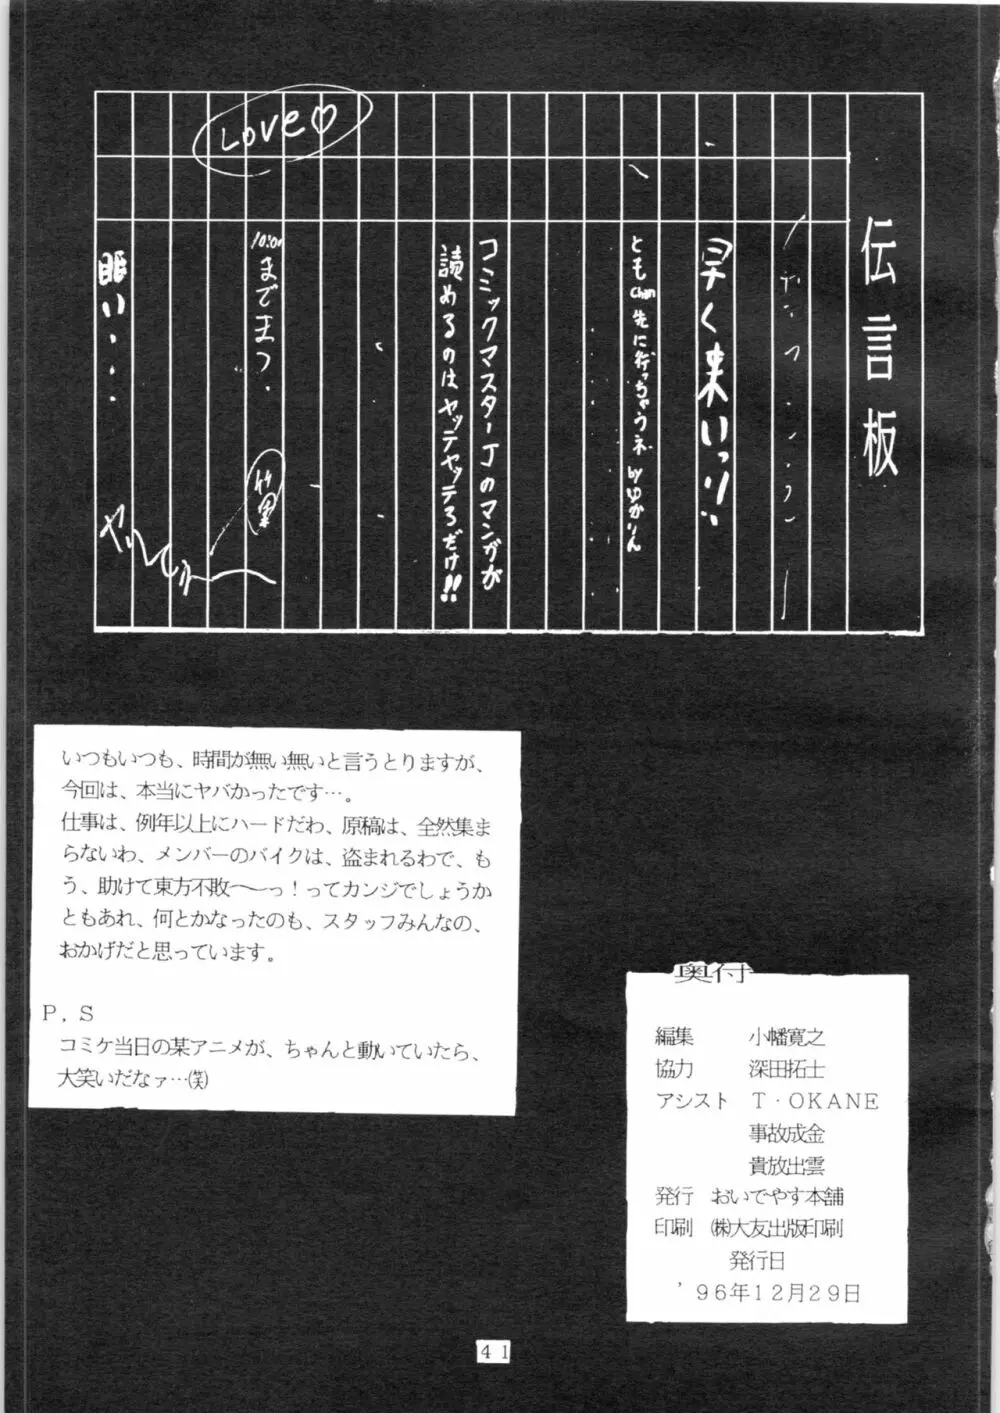 伝言板
早く来いっ!!
ともchan先に行っちゃうネ byゆかりん
コミックマスターJのマンガが
読めるのはヤッテヤッテろだけ!!
Love♡
10:00までまつ.
眠い・・・・
いつもいつも、時間が無い無いと言うとりますが、
今回は、本当にヤバかったです…。
仕事は、例年以上にハードだわ、原稿は、全然集ま
らないわ、メンバーのバイクは、盗まれるわで、も
う、助けて東方不敗〜〜っ!ってカンジでしょうか
ともあれ、何とかなったのも、スタッフみんなの、
おかげだと思っています。
P.S
コミケ当日の某アニメが、ちゃんと動いていたら、
大笑いだなァ…(笑)
奥付
編集 小幡寛之
協力 深田拓士
アシスト T・OKANE
事故成金
貴放出雲
発行 おいでやす本舗
印刷 ㈱大友出版印刷
発行日
'96年12月29日
41